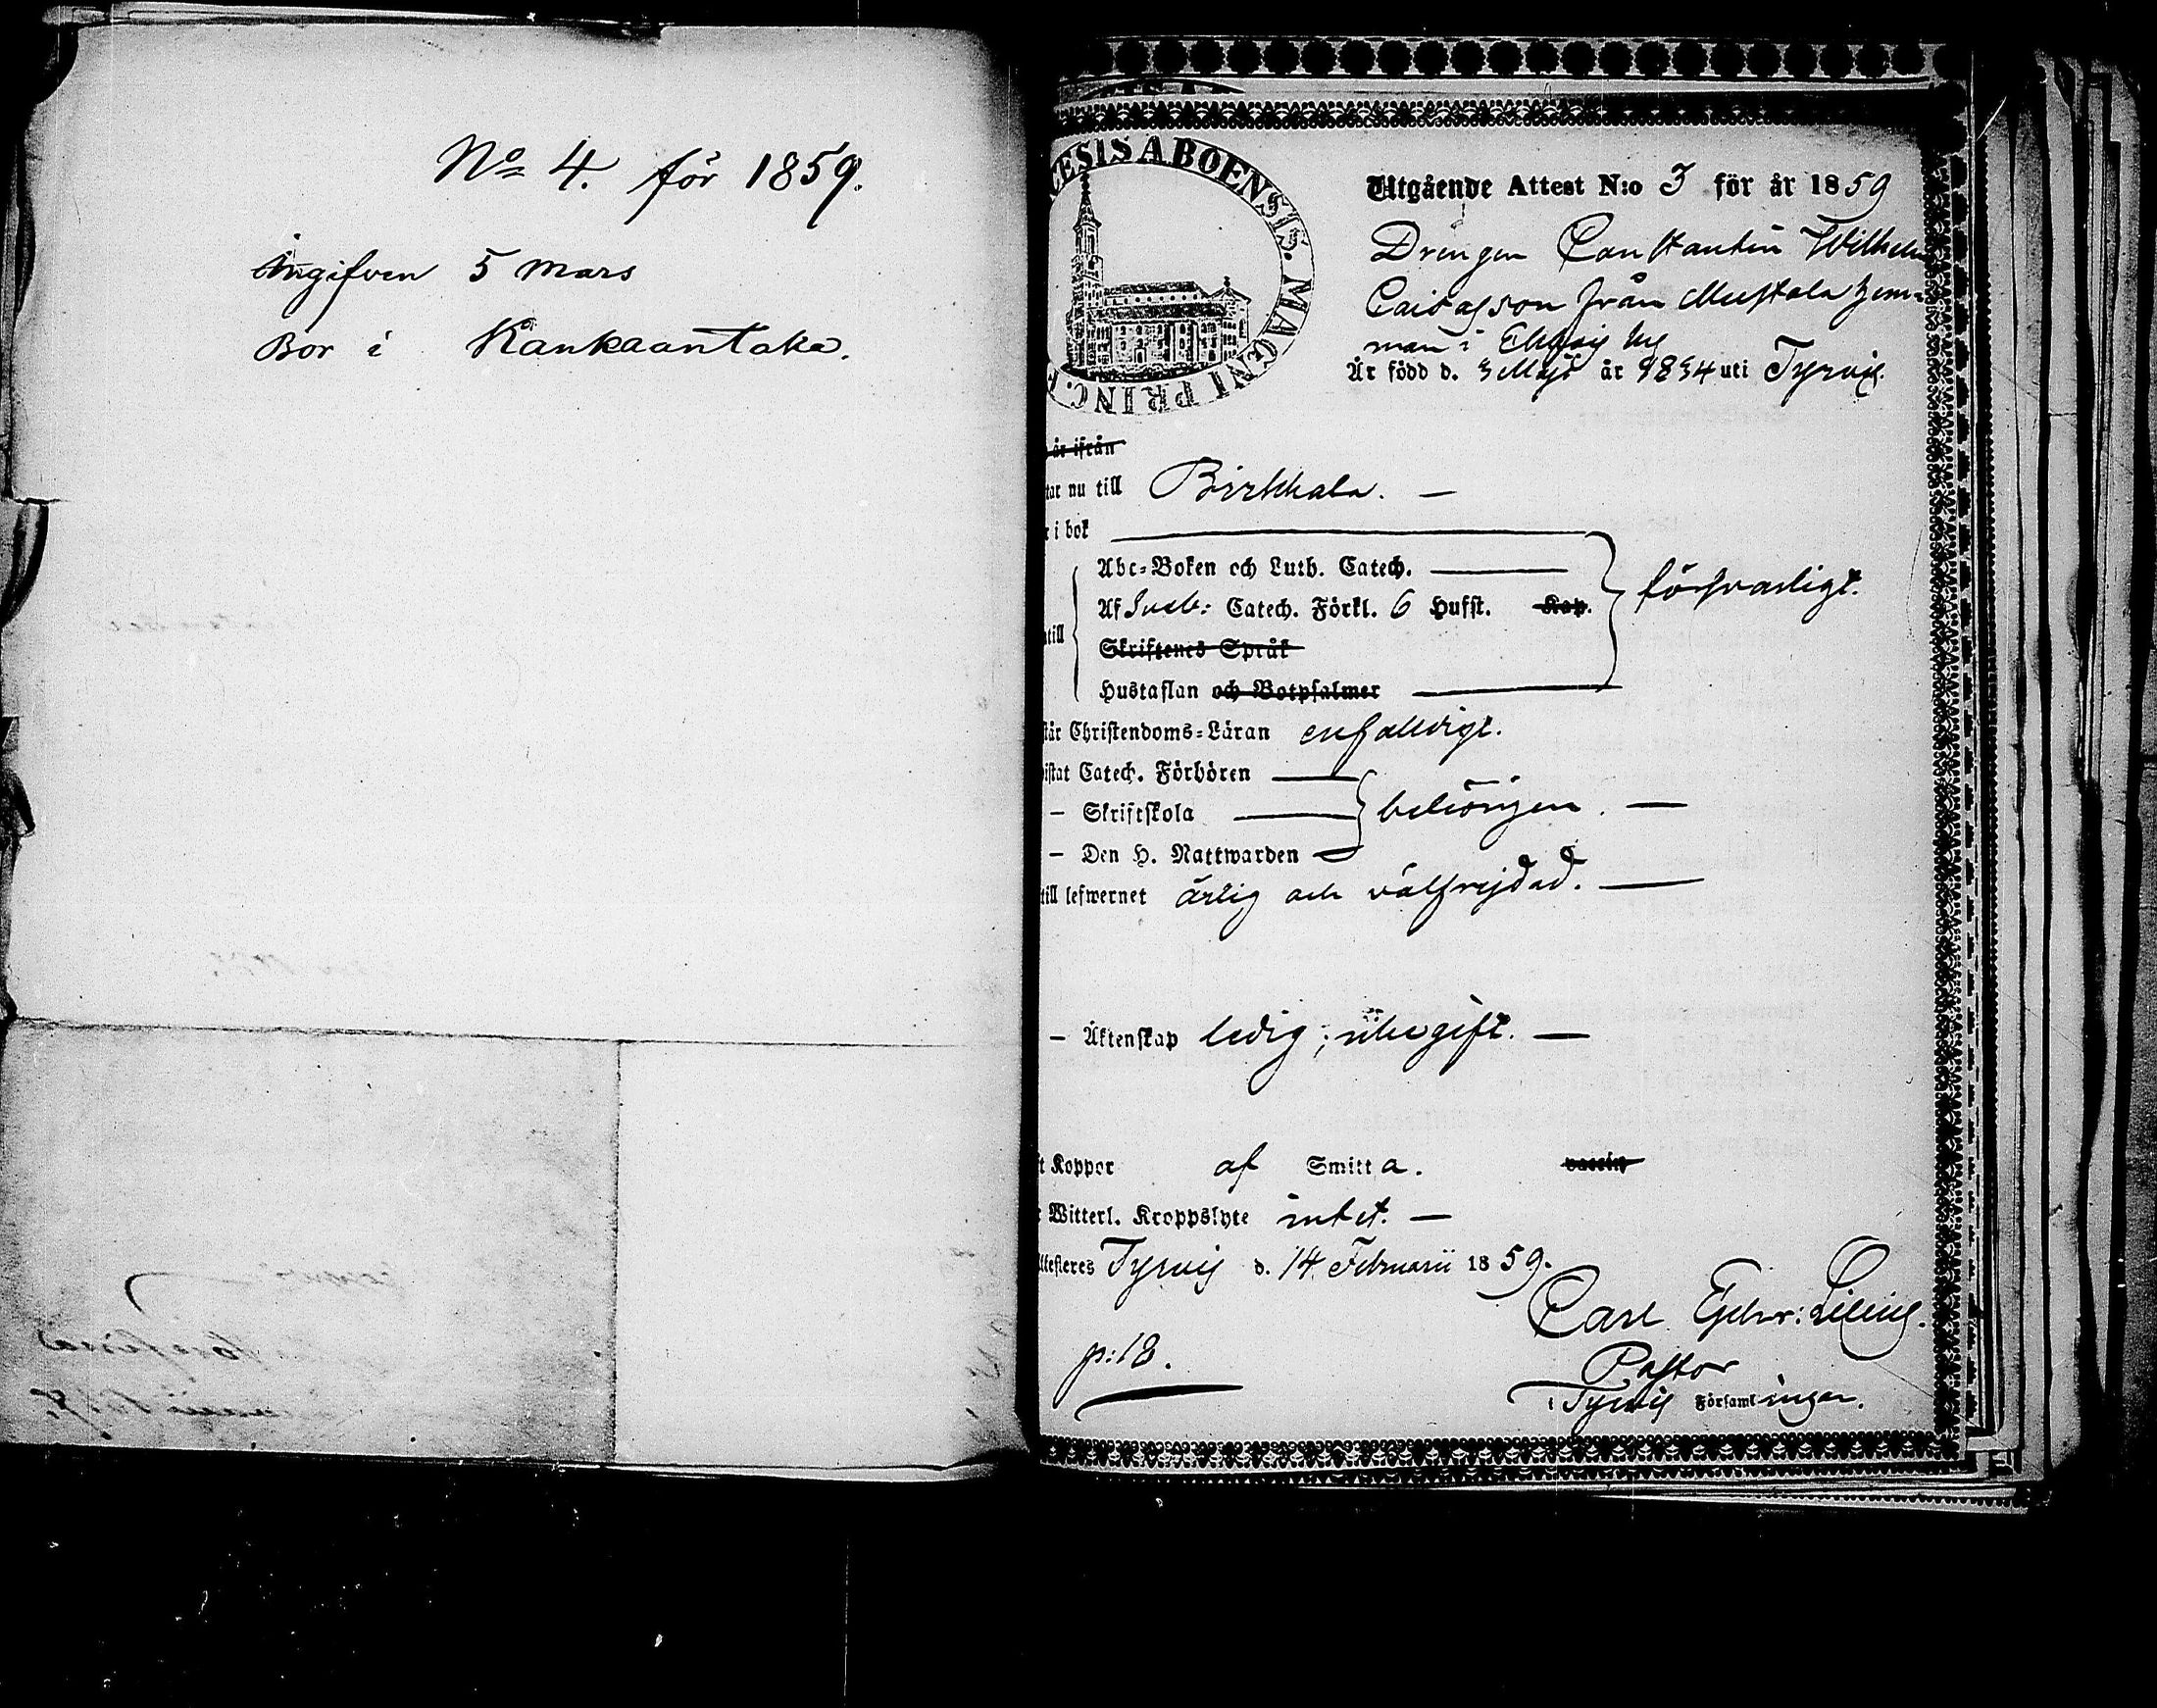 No 4. för 1859.
Ingifven 5 Mars
Bor i Kankaantaka.
CESIS ABOENSIS. MAGNI PRINC. F
Utgående Attest N:o 3 för år 1859
Drengen Constantin Wilhelm
från Mustala hem-
man i
Är född d. 3 Maji år 1834 uti Tyrvis.
år ifrån
tar nu till Birkkala. —
r i bok
Abc-Boken och Luth. Catech.
Af Sveb: Catech. Förkl. 6 Hufst. Kap. försvarligt.
till
Skriftenes Språk
Hustaflan och Botpsalmer
står Christendoms-Läran enfaldigt.
vistat Catech. Förhören
— Skriftskola behörigen. —
— Den H. Nattwarden
till lefwernet ärlig och välfrejdad. —
— Äktenskap ledig; —
ft Koppor af Smitta. vaccin
r Witterl. Kroppslyte intet. —
Attesteres Tyrvis d. 14 Februarii 1859.
Carl
p: 18.
Pastor
i Tyrvis Församlingar.